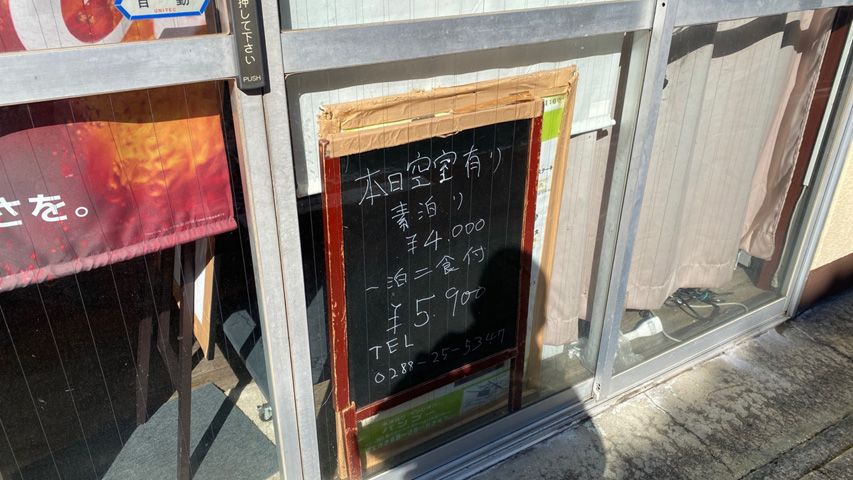 自動
UNITEC
押して下さい
PUSH
さを。
本日空室有り
素泊り
¥4.000
一泊二食付
¥5.900
TEL
0288-25-5347